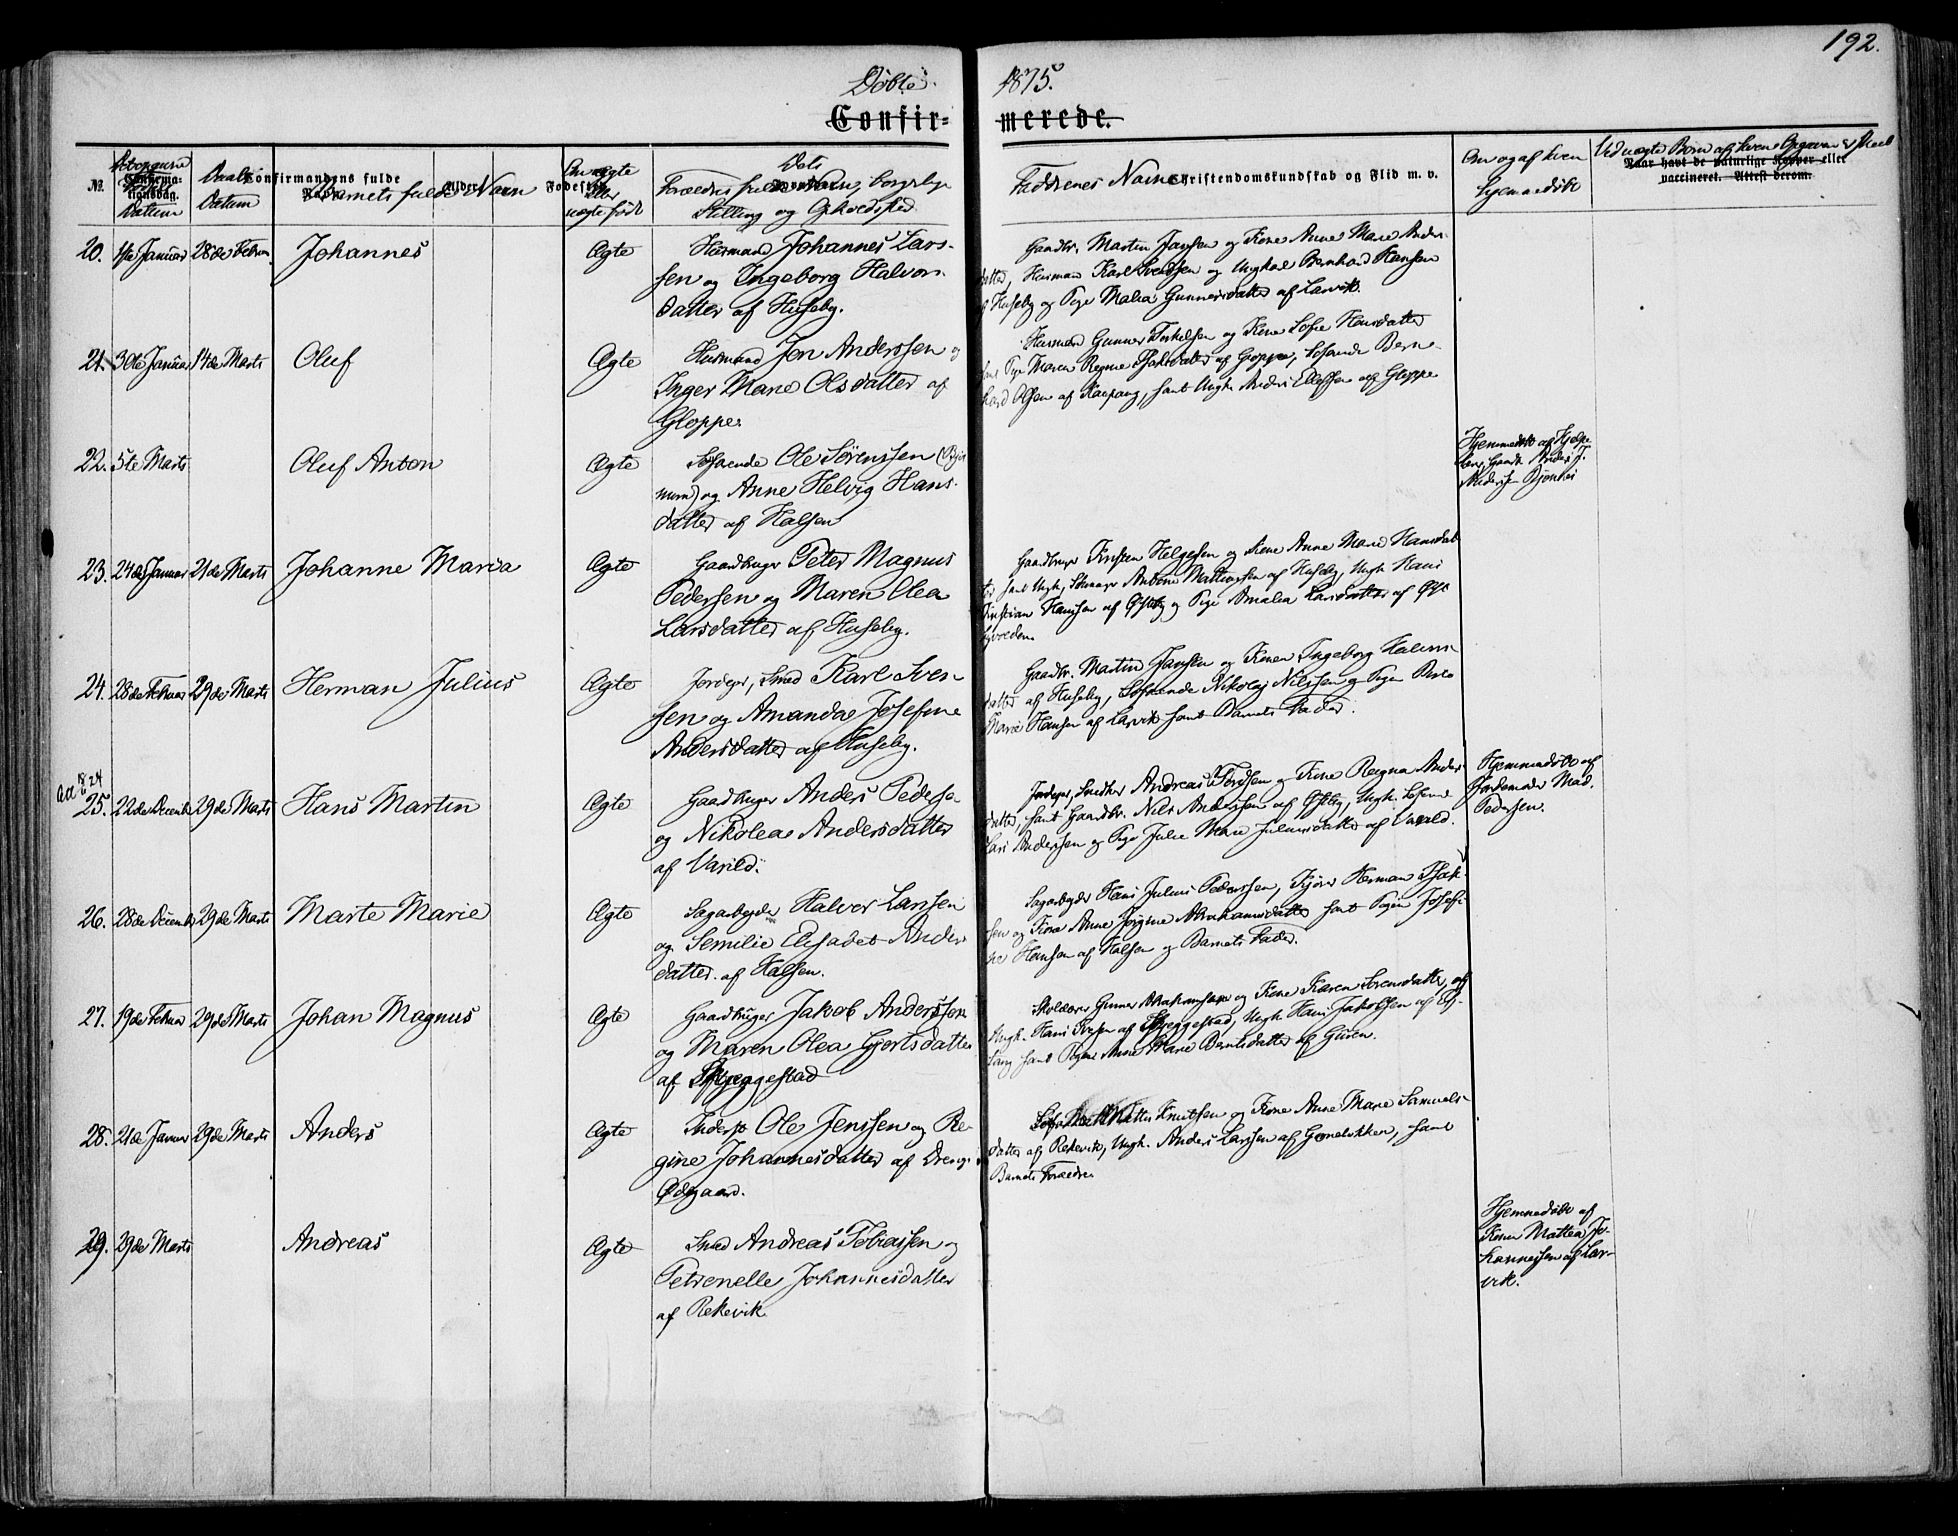 192.
Døbte 1875.
Confir- merede.
No. Confirmationsdag. Datum
Daabs Datum
Confirmandens fulde Navn. Barnets fulde Navn
Alder.
Fødested.
Om ægte eller uægte født
Forældres fulde Navn, Borgerlige
Stilling og Opholdssted
Faddrenes Navne
Christendomskundskab og Flid m. v.
Om og af hvem
hjemmedøbt
Ved uægte Børn af hvem Opgaven er skeet
Naar havt de naturlige Kopper eller
vaccineret. Attest derom.
20. 1ste Januar 28de Februar Johannes Ægte Husmand Johannes Lars-
sen og Ingeborg Halvors-
datter af Huseby.
Gaardbr. Martin Jansen og Kone Anne Marie Anders-
datter, Husmand Karl Svendsen og Ungkal Bernhard Hansen
af Huseby og Pige Malea Gunnersdatter af Larvik.
21. 30te Januar 14de Marts Oluf Ægte Husmand Jon Anderssen og
Inger Marie Olsdatter af
Gloppe.
Husmand Gunner Terkelsen og Kone Sofie Hansdatter
samt Pige Maren Regine Isaksdatter af Gloppe, Søfarende Bern-
hard Olsen af Kaupang, samt Ungk. Anders Ellefsen af Gloppe
22. 5te Marts Oluf Anton Ægte Søfarende Ole Sørenssen
og Anne Helvig Hans-
datter af Halsen
Hjemmedøbt af
Gaardb. Anders
23. 24de Januar 21de Marts Johanne Maria Ægte Gaardbruger Peter Magnus
Pedersen og Maren Olea
Larsdatter af Huseby.
Gaardbruger Kristen Helgesen og Kone Anne Marie Hansdat-
ter samt Ungk. Anton Mathiassen af Huseby, Ungk. Hans
Kristian Hanssen af Østby og Pige Amalea Larsdatter af
24. 28de Februar 29de Marts Herman Julius Ægte Jordeger, Smed Karl Sven-
sen og Amanda Josefine
Andersdatter af Huseby.
Gaardbr. Martin Jansen og Konen Ingeborg Halvors-
datter af Huseby, Søfarende Nikolaj Nilssen og Pige
Marie Hansen af Larvik samt Barnets Fader.
25. 22de Decemb. 29de Marts Hans Martin Ægte Gaardbruger Anders Peders.
og Nikolea Andersdatter
af Varild.
Jordeger, Snedker Andreas Tordsen og Kone Regina Anders-
datter, samt Gaardbr. Nils Anderssen af Østby, Ungk.
Lars Anderssen og Pige Julie Marie Juliusdatter af Varild.
Hjemmedøbt af
Jordemoder Mad.
Pedersen.
26. 28de December 29de Marts Marte Marie Ægte Sagarbejder Halver Larssen
og Semilie Elisabet Anders-
datter af Halsen.
Sagarbejder Hans Julius Pederssen, Kjører Herman Isak-
sen og Kone Anne Jørgine Abrahamsdatter samt Pigen Josefi-
ne Hansen af Halsen og Barnets Fader.
27. 19de Februar 29de Marts Johan Magnus Ægte Gaardbruger Jakob Anderssen
og Maren Olea Gjertsdatter
af Skjeggestad
Skolelærer Gunner Abrahamsen og Kone Karen Sørensdatter, og
Ungk. Hans Iversen af Skjeggestad, Ungk. Hans Jakobsen af
samt Pigen Anne Marie Berntsdatter af Guren.
28. 21de Januar 29de Marts Anders Ægte Inderst Ole Jenssen og Re-
gine Johannesdatter af Drengs-
Ødegaard.
Mattis Knutsen og Kone Anne Marie Samuels-
datter af Rekevik, Ungk. Anders Larssen af Gonelokken, samt
Barnets Forældre
29. 29de Marts Andreas Ægte Smed Andreas Tobiassen og
Petronelle Johannesdatter
af Rekevik
Hjemmedøbt af
Konen Mattea Jo-
hannesen af Lar-
vik.